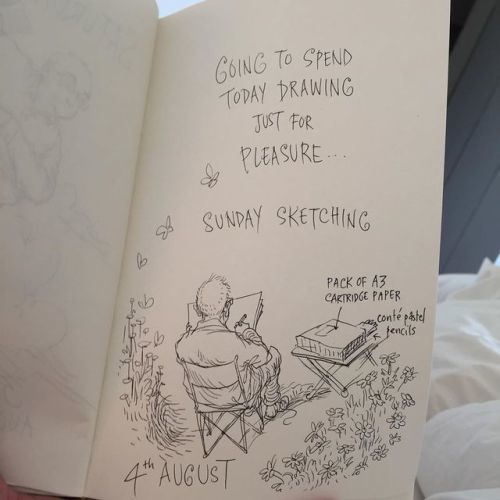 GOING TO SPEND
TODAY DRAWING
JUST FOR
PLEASURE...
SUNDAY SKETCHING
PACK OF A3
CARTRIDGE PAPER
conté pastel
pencils
4th AUGUST